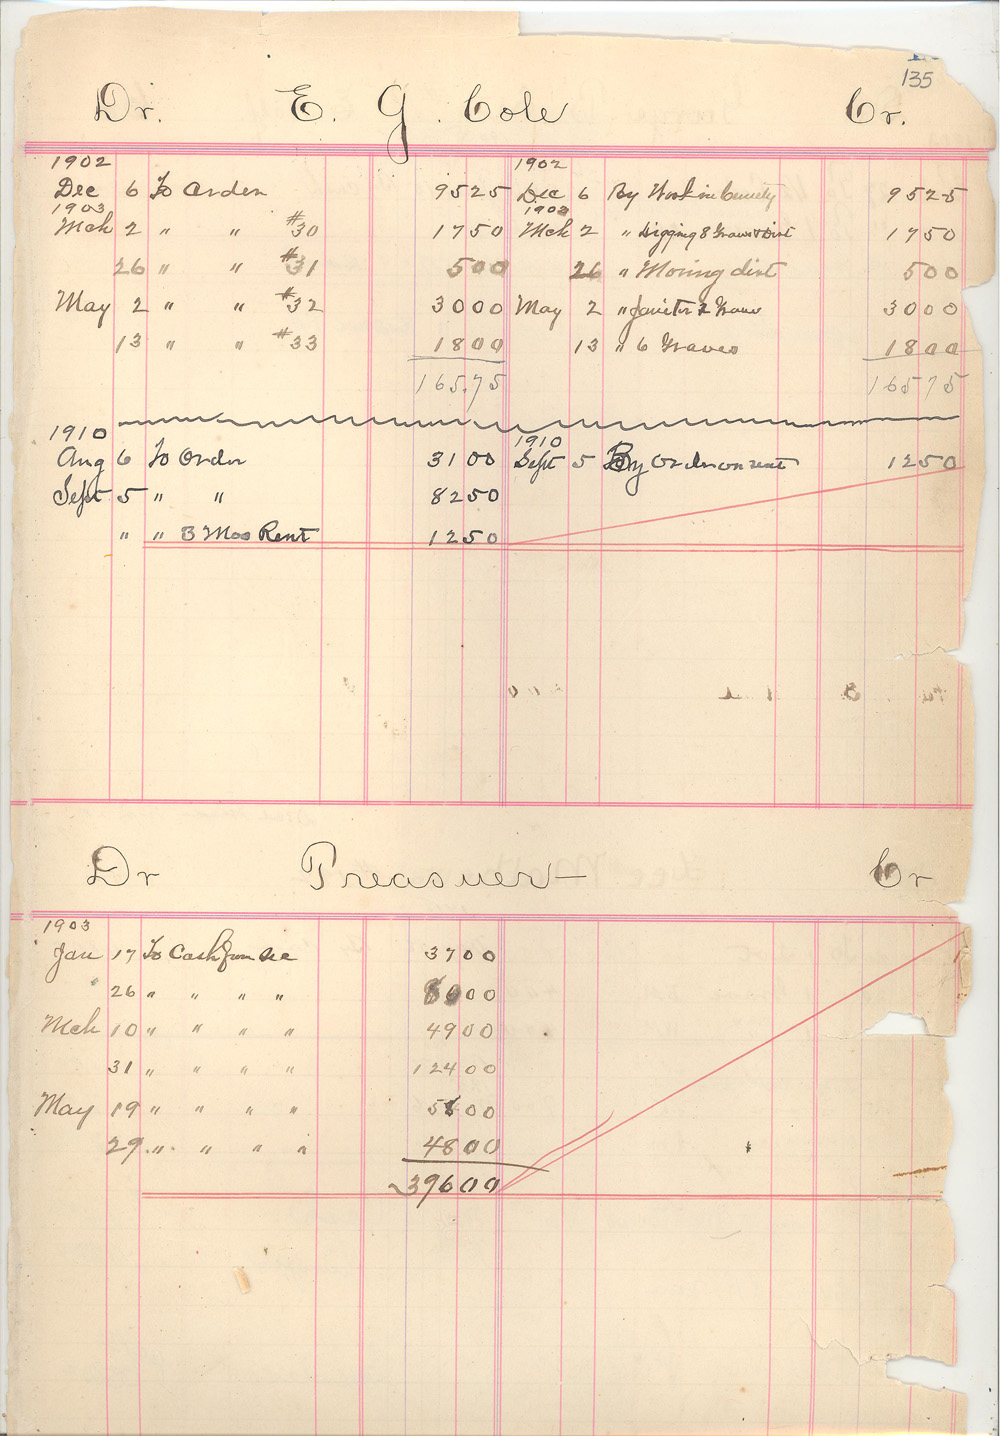 135
Dr. E. G. Cole Cr.
1902 1902
Dec 6 To Order 95 25 Dec 6 By Work in Cemety 95 25
1903 1903
Mch 2 " " #30 17 50 Mch 2 " Digging 8 Graves & Dirt 17 50
26 " " #31 5 00 26 " Moving dirt 5 00
May 2 " " #32 30 00 May 2 " Janitor 2 Graves 30 00
13 " " #33 18 00 13 " 6 Graves 18 00
165.75 165 75
1910 1910
Aug 6 To Order 31 00 Sept 5 By Order on rent 12 50
Sept 5 " " 82 50
" " 3 Mos Rent 12 50
Dr Treasuer Cr
1903
Jan 17 To Cash from Sec 37 00
" 26 " " " " 80 00
Mch 10 " " " " 49 00
31 " " " " 124 00
May 19 " " " " 58 00
29 " " " " 48 00
396 00